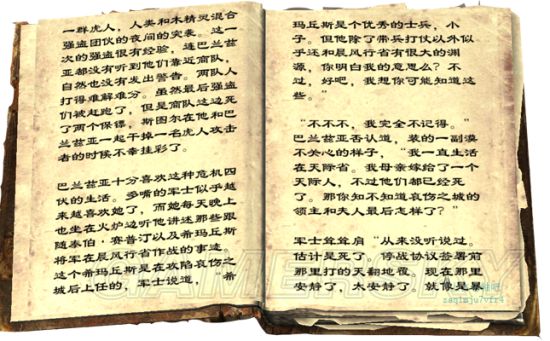 一群虎人，人类和木精灵混合
强盗团伙的夜间的突袭。这一
次的强盗很有经验，连巴兰兹
亚都没有听到他们靠近商队，
自然也没有发出警告。两队人
打得难解难分。虽然最后强盗
们被赶跑了，但是商队这边死
了两个保镖，斯图尔在他和巴
兰兹亚一起干掉一名虎人攻击
者的时候不幸挂彩了。
巴兰兹亚十分喜欢这种危机四
伏的生活。多嘴的军士似乎越
来越喜欢她了，而她每天晚上
也坐在火炉边听他讲述那些跟
随泰伯·赛普汀以及希玛丘斯
将军在晨风行省作战的事迹。
这个希玛丘斯是在攻陷哀伤之
城后上任的，军士说道，“希
玛丘斯是个优秀的士兵，小
子。但他除了带兵打仗以外似
乎还和晨风行省有很大的渊
源，你明白我的意思么？不
过，好吧，我想你可能知道这
些。”
“不不不，我完全不记得。”
巴兰兹亚否认道，装的一副漠
不关心的样子，“我一直生活
在天际省。我母亲嫁给了一个
天际人，不过他们都已经死
了。那你知不知道哀伤之城的
领主和夫人最后怎样了？”
军士耸耸肩“从来没听说过。
估计是死了。停战协议签署前
那里打的天翻地覆，现在那里
安静了，太安静了，就像是暴
GAMERSKY
zaqimju7vfr4